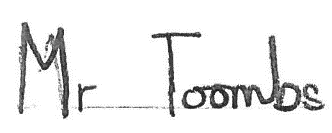 Mr Toombs